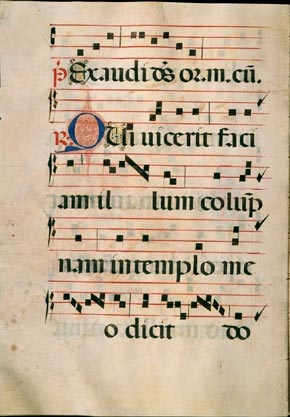 p̃ Exaudi d̃s or.m.cũ.
R. Qui uicerit faci
am il lum colup̃
nam in templo me
o dicit do